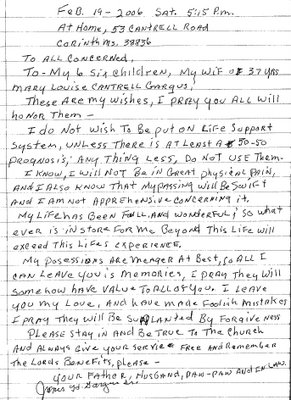 Feb. 19 - 2006 Sat. 5:15 P.m.
At Home, 53 Cantrell Road
Corinth Ms. 38836
To All Concerned,
To - My 6 six children, My Wif of 37 yrs
Mary Louise Cantrell Gargus,
These are my wishes, I pray you all will
honor them -
I do not wish to be put on life support
system, unless there is at least a 50-50
prognosis, any thing less, do not use them.
I know, I will not be in great physical pain,
and I also know that my passing will be swift
and I am not apprehensive concerning it.
My life has been full and wonderful; so what
ever is in store for me beyond this life will
exceed this life's experience.
My posessions are meager at best, so all I
can leave you is memories, I pray they will
somehow have value to all of you. I leave
you my love, and have made foolish mistakes
I pray they will be suplanted by forgiveness
Please stay in and be true to the church
and always give your service free and remember
the Lords benefits, please -
Your Father, Husband, Paw-Paw and in law.